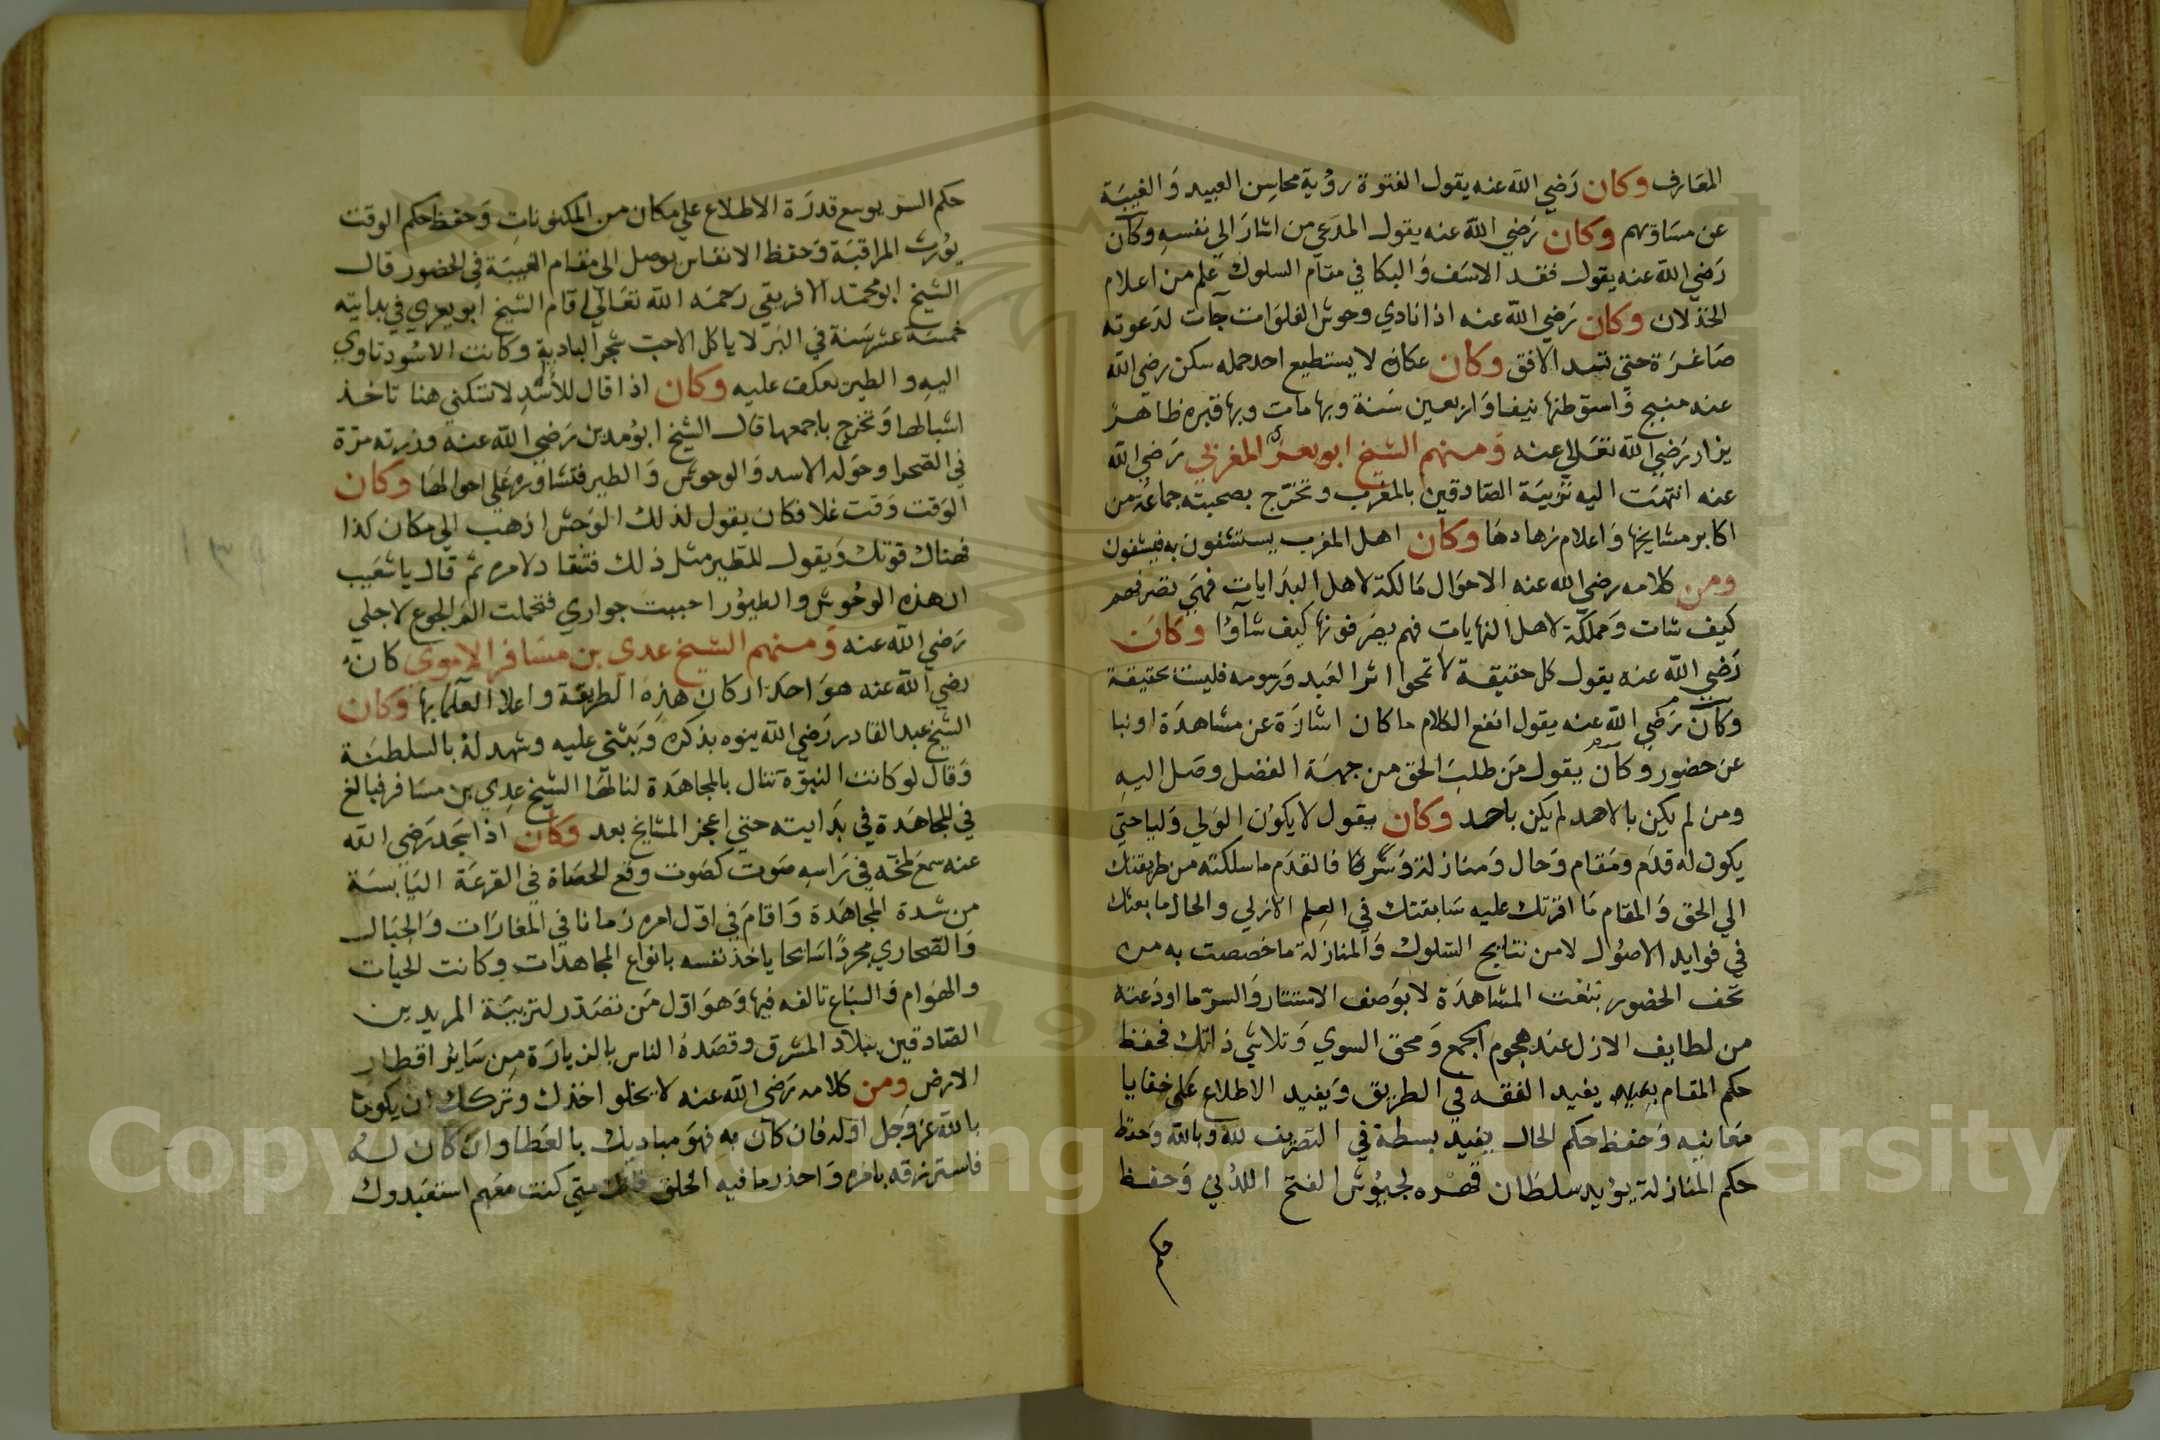 المعارف وكان رضي الله عنه يقول الفتوة رؤية محاسن العبيد والغيبة
عن مساويهم وكان رضي الله عنه يقول المدعي من اشار الي نفسه وكان
رضي الله عنه يقول فقد الاسف والبكا في مقام السلوك علم من اعلام
الخذلان وكان رضي الله عنه اذا نادي وحوش الفلوات جآت لدعوته
صاغرة حتي تسد الافق وكان عكازه لا يستطيع احد حمله سكن رضي الله
عنه منبج واستوطنها نيفا واربعين سنة وبها مات وبها قبره ظاهر
يزار رضي الله تعالي عنه ومنهم الشيخ ابو يعزي المغربي رضي الله
عنه انتهت اليه تربية الصادقين بالمغرب وتخرج بصحبته جماعة من
اكابر مشايخها واعلام زهادها وكان اهل المغرب يستشفون به فيشفون
ومن كلامه رضي الله عنه الاحوال مالكة لاهل البدايات فهي تصرفهم
كيف شات ومملكة لاهل النهايات فهم يصرفونها كيف شآوا وكان
رضي الله عنه يقول كل حقيقة لا تمحوا اثر العبد ورسومه فليست بحقيقة
وكان رضي الله عنه يقول انفع الكلام ما كان اشارة عن مشاهدة او نبا
عن حضور وكان يقول من طلب الحق من جهة الفضل وصل اليه
ومن لم يكن بالاحد لم يكن باحد وكان يقول لا يكون الولي وليا حتي
يكون له قدم ومقام وحال ومنازلة وسر فالقدم ما سلكته من طريقتك
الي الحق والمقام ما اقرتك عليه سابقتك في العلم الازلي والحال ما بعثك
في فوايد الاصول لا من نتايج السلوك والمنازلة ما خصصت به من
تحف الحضور بنعت المشاهدة لا بوصف الاستتار والسر ما اودعته
من لطايف الازل عند هجوم الجمع ومحق السوي وتلاشي ذاتك فحفظ
حكم المقام يفيد الفقه في الطريق ويفيد الاطلاع علي خفايا
معانيه وحفظ حكم الحال يفيد بسطة في التصريف لله وبالله وحفظ
حكم المنازلة يؤيد سلطان قهره لجيوش الفتح اللدني وحفظ
حكم
حكم السر يوسع قدرة الاطلاع علي مكان من المكنونات وحفظ حكم الوقت
يورث المراقبة وحفظ الانفاس يوصل الي مقام الغيبة في الحضور قال
الشيخ ابو محمد الافريقي رحمه الله تعالي اقام الشيخ ابو يعزي في بدايته
خمسة عشر سنة في البر لا ياكل الا حب شجر البادية وكانت الاسود تاوي
اليه والطير يعكف عليه وكان اذا قال للأسد لا تسكني هنا تاخذ
اشبالها وتخرج باجمعها قال الشيخ ابو مدين رضي الله عنه وزرته مرة
في الصحرا وحوله الاسد والوحوش والطير فتشاوره علي احوالها وكان
الوقت وقت غلا فكان يقول لذلك الوحش اذهب الي مكان كذا
فهناك قوتك ويقول للطير مثل ذلك فتنقاد لامره ثم قال يا شعيب
ان هذه الوحوش والطيور احببت جواري فتحملت الم الجوع لاجلي
رضي الله عنه ومنهم الشيخ عدي بن مسافر الاموي كان
رضي الله عنه هو احد اركان هذه الطريقة واعلا العلما بها وكان
الشيخ عبد القادر رضي الله ينوه بذكره ويثني عليه وشهد له بالسلطنة
وقال لو كانت النبوة تنال بالمجاهدة لنالها الشيخ عدي بن مسافر فبالغ
في المجاهدة في بدايته حتي اعجز المشايخ بعد وكان اذا سجد رضي الله
عنه سمع لمخه في راسه صوت كصوت وقع الحصاة في القرعة اليابسة
من شدة المجاهدة واقام في اول امره زمانا في المغارات والجبال
والصحاري مجردا سايحا ياخذ نفسه بانواع المجاهدات وكانت الحيات
والهوام والسباع تالفه فيها وهو اول من تصدر لتربية المريدين
الصادقين ببلاد المشرق وقصده الناس بالزيارة من ساير اقطار
الارض ومن كلامه رضي الله عنه لا يخلو اخذك وتركك ان يكونا
بالله عز وجل او له فان كان به فهو مباديك بالعطا وان كان له
فاسترزقه بامره واحذر ما فيه الخلق فانك متي كنت معهم استعبدوك
Copyright © King Saud University